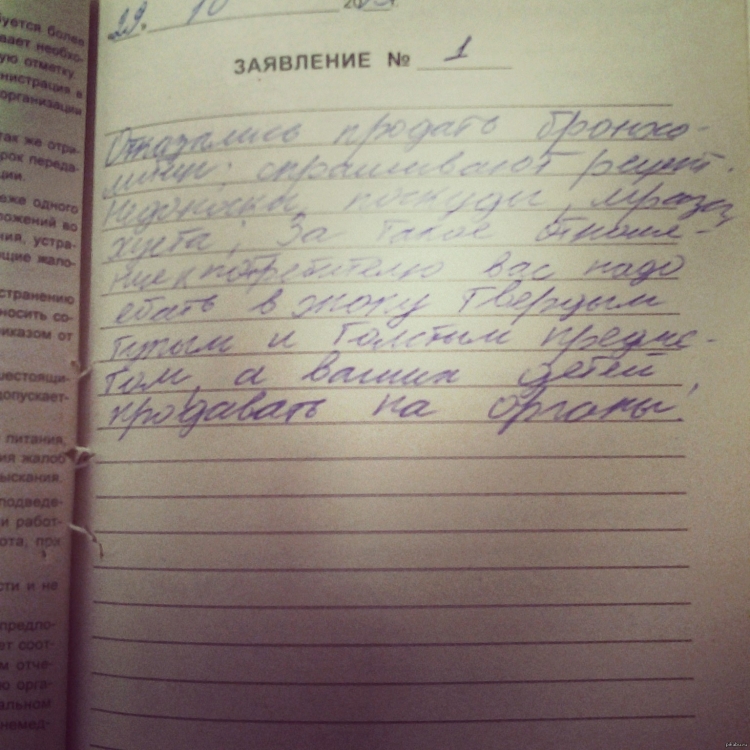 буется более
вает необхо-
ую отметку.
нистрация в
организации
так же отри-
рок переда-
ции.
еже одного
ожений во
ния, устра-
щие жало-
странению
носить со-
риказом от
шестоящи-
допускает-
питания,
ия жалоб
ыскания.
подведе-
и работ-
ота, при
сти и не
предло-
ет соот-
м отче-
ю орга-
альном
немед-
29. 10
ЗАЯВЛЕНИЕ № 1
Отказались продать бронхо-
литин; спрашивают рецепт.
Недоноски, паскуды, мрази,
хуета; За такое отноше-
ние к потребителю вас надо
ебать в жопу твердым
тупым и толстым предме-
том, а ваших детей
продавать на органы!